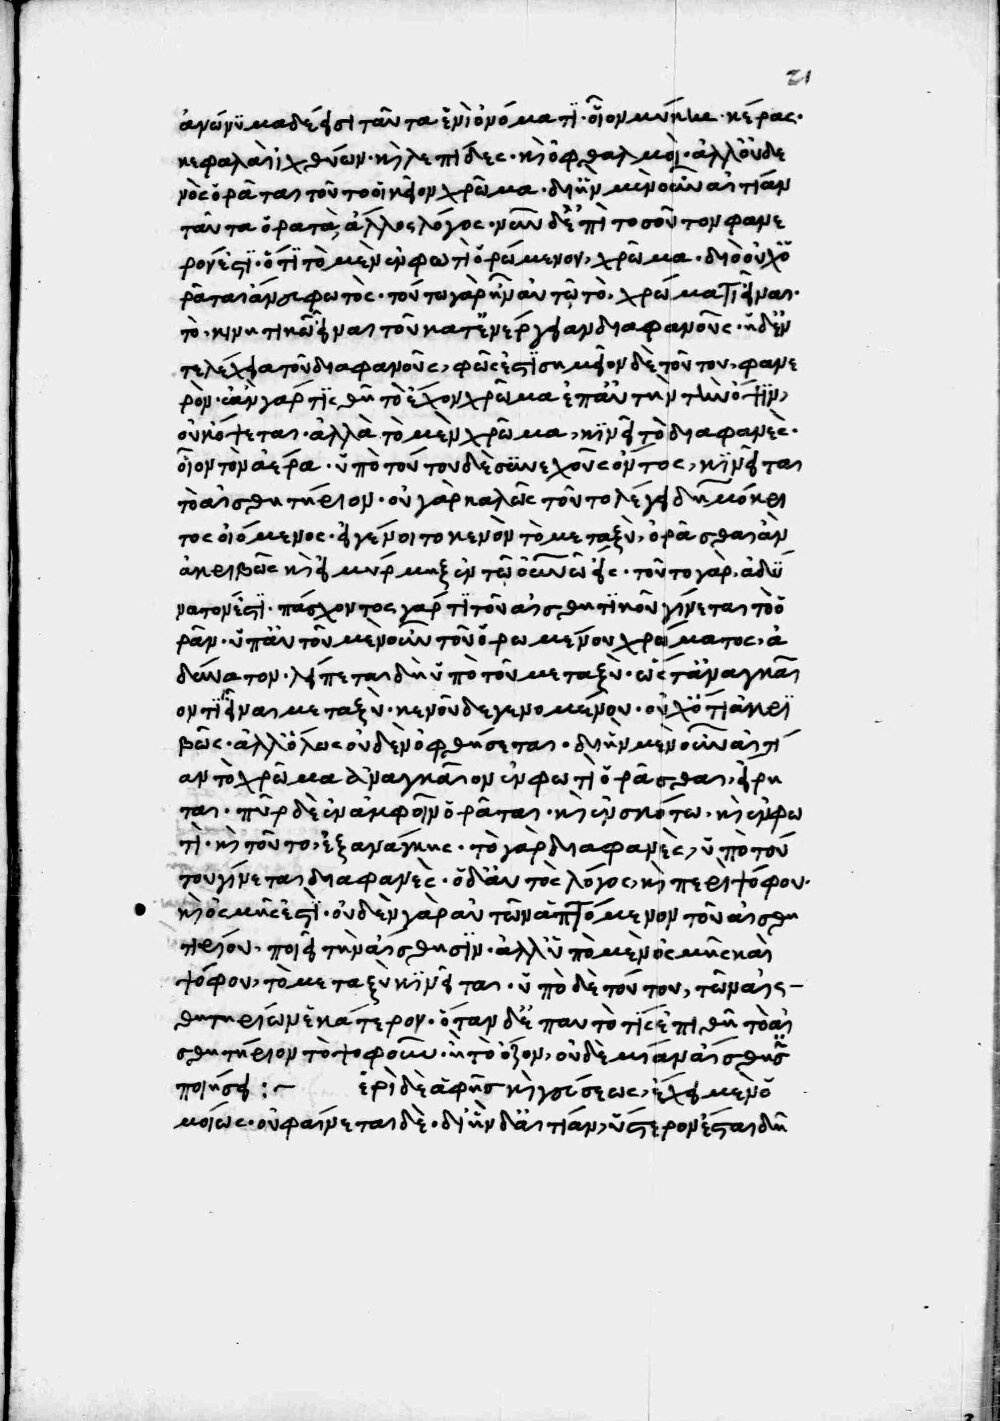 ἀνώνυμα δέ εἰσι ταῦτα ἑνὶ ὀνόματι· οἷον μύκης· κέρας·
κεφαλαὶ ἰχθύων· κὶ λεπίδες· κὶ ὀφθαλμοὶ· ἀλλ' οὐδε
νὸς ὁρᾶται τοῦτο οἰκεῖον χρῶμα· δι ἣν μὲν οὖν αἰτίαν
ταῦτα ὁρατὰ, ἄλλος λόγος· νῦν δ' ἐπὶ τοσοῦτον φανε
ρόν ἐστι· ὅτι τὸ μὲν ἐν φωτὶ ὁρώμενον, χρῶμα· διὸ οὐχ ὁ
ρᾶται ἄνευ φωτὸς· τοῦτο γὰρ ἦν αὐτῶ τὸ χρώματι εἶναι·
τὸ κινητικῶ εἶναι τοῦ κατ' ἐνέργειαν διαφανοῦς· ἡ δ' ἐν
τελέχεια τοῦ διαφανοῦς, φῶς ἐστι σημεῖον δὲ τούτου, φανε
ρὸν· ἐὰν γάρ τις θῆ τὸ ἔχον χρῶμα ἐπ' αὐτὴν τὴν ὄψιν,
οὐκ ὄψεται· ἀλλὰ τὸ μὲν χρῶμα, κινεῖ τὸ διαφανὲς·
οἷον τὸν ἀέρα· ὑπὸ τούτου δὲ συνεχοῦς ὄντος, κινεῖται
τὸ αἰσθητήριον· οὐ γὰρ καλῶς τοῦτο λέγει δημόκρι
τος οἰόμενος· εἰ γένοιτο κενὸν τὸ μεταξὺ, ὁρᾶσθαι ἂν
ἀκριβῶς κὶ εἰ μύρμηξ ἐν τῶ οὐνῶ εἴς· τοῦτο γὰρ, ἀδύ
νατον ἐστι· πάσχοντος γάρ τι τοῦ αἰσθητικοῦ γίνεται τὸ ὁ
ρᾶν· ὑπ' αὐτοῦ μὲν οὖν τοῦ ὁρωμένου χρώματος, ἀ
δύνατον· λείπεται δὴ ὑπὸ τοῦ μεταξὺ· ὥστ' ἀναγκαῖ
ον τι εἶναι μεταξὺ· κενοῦ δε γενομένου· οὐχ ὅτι ἀκρι
βῶς· ἀλλ' ὅλως οὐδὲν ὀφθήσεται· δι ἣν μὲν οὖν αἰτί
αν τὸ χρῶμα ἀναγκαῖον ἐν φωτὶ ὁρᾶσθαι, εἴρη
ται· πῦρ δὲ ἐν ἀμφοῖν ὁρᾶται· κὶ ἐν σκότω· κὶ ἐν φω
τὶ· κὶ τοῦτο, ἐξ ἀνάγκης· τὸ γὰρ διαφανὲς, ὑπὸ τού
του γίνεται διαφανὲς· ὁ δ' αὐτὸς λόγος, κὶ περὶ ψόφου·
κὶ ὀσμῆς ἐστὶ· οὐδὲν γὰρ αὐτῶν ἁπτόμενον τοῦ αἰσθη
τηρίου· ποιεῖ τὴν αἴσθησιν· ἀλλ' ὑπὸ μὲν ὀσμῆς καὶ
ψόφου, τὸ μεταξὺ κινεῖται· ὑπὸ δὲ τούτου, τῶν αἰσ-
θητηρίων ἑκάτερον· ὅταν δ' ἐπ αυτὸ τις ἐπιθῆ τὸ αἰ
σθητήριον τὸ ψοφοῦν· ἢ τὸ ὄζον, οὐδὲ μίαν αἴσθησιν
ποιήσει :~ ἐρὶ δὲ ἁφῆς κὶ γεύσεως, ἔχει μὲν ὁ
μοίως· οὐ φαίνεται δὲ· δι ἣν δ' αἰτίαν, ὕστερον ἔσται δῆ